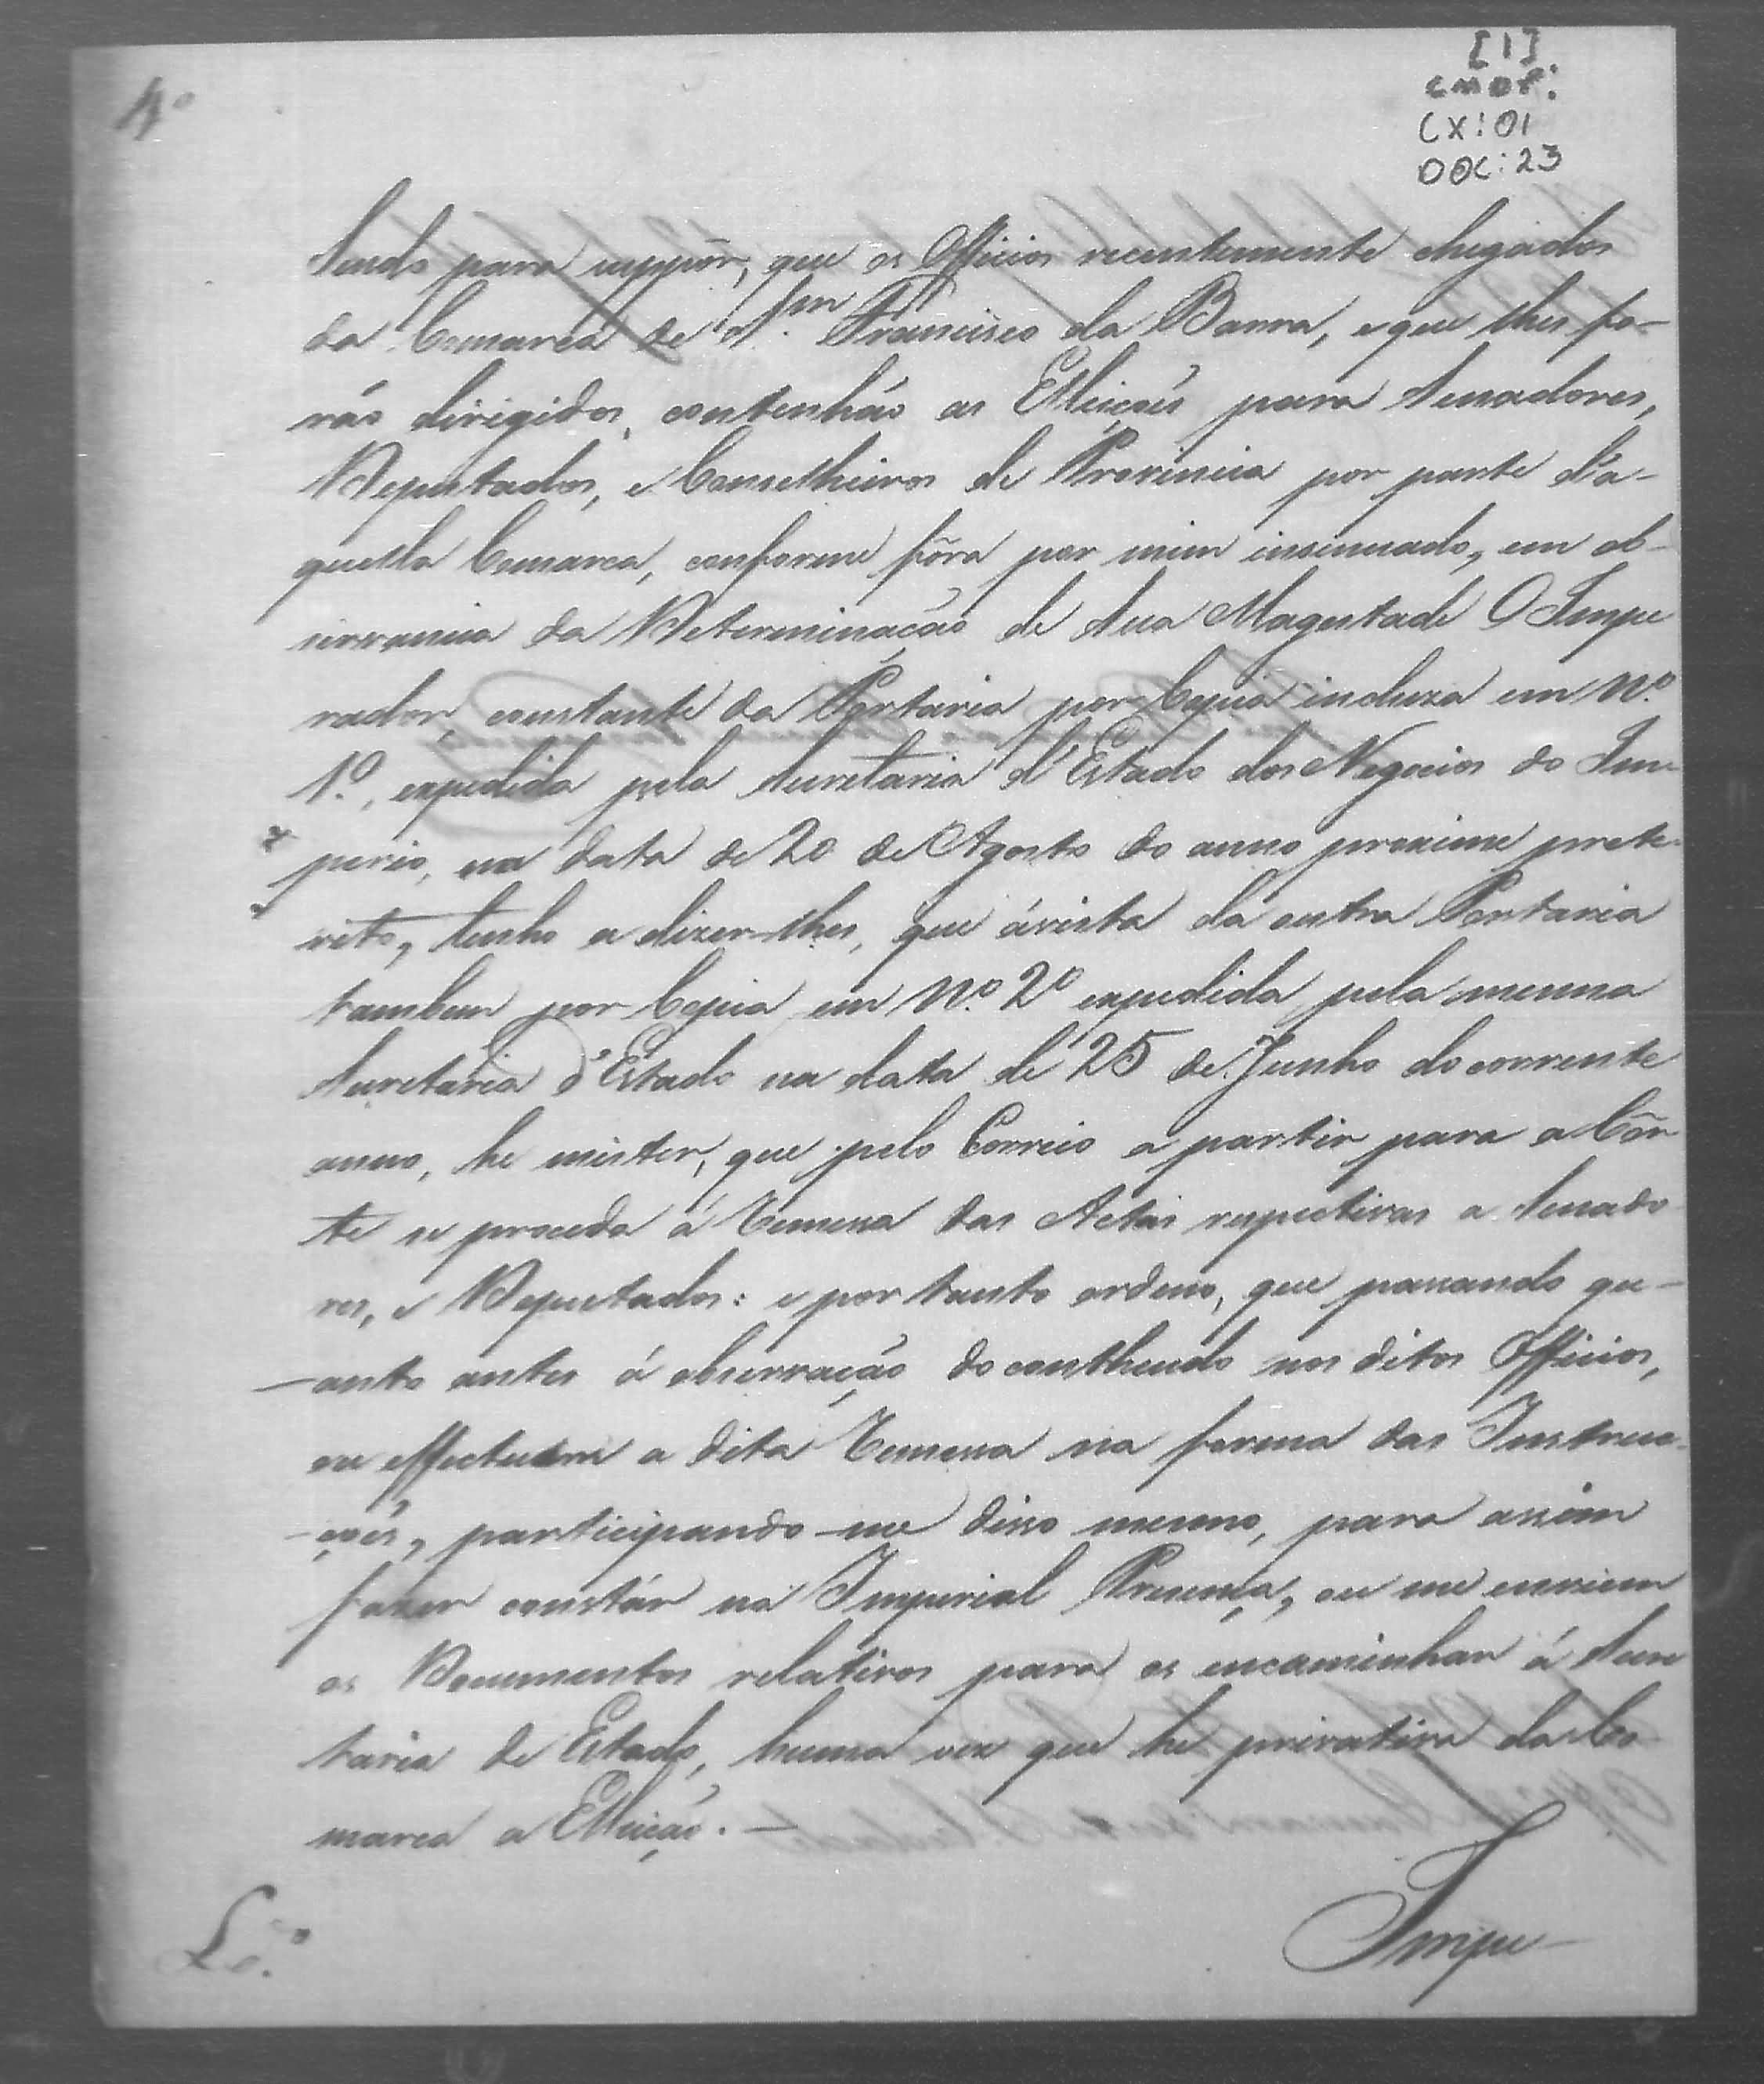 4º
[1]
CMOP:
CX:01
DOC:23
Sendo para suppôr, que os Officios recentemente chegados
da Comarca de S.m Francisco da Barra, e que lhes fo-
rão dirigidos, contenhão as Elleicoés para Senadores,
Deputados, e Conselheiros de Provincia por parte d'a-
quella Comarca, conforme fôra por mim insinuado, em ob-
servancia da Determinação de Sua Magestade O Impe
rador, constante da Portaria por Copia incluza em Nº
1º, expedida pela Secretaria d'Estado dos Negocios do Im-
perio, na data de 20 de Agosto do anno proximo prete-
rito, tenho a dizer-lhes, que ávista da outra Portaria
tambem por Copia em Nº 2º expedida pela mesma
Secretaria d'Estado na data de 25 de Junho do corrente
anno, he mister, que pelo Correio a partir para a Côr
te se proceda á Remessa das Actas respectivas a Senado
res, e Deputados: e por tanto ordeno, que passando qu-
-anto antes á observação do contheudo nos ditos Officios,
ou effectuem a dita Remessa na forma das Instruc-
-çoés, participando-me disso mesmo, para assim
fazer constár na Imperial Prezença, ou me enviem
os Documentos relativos para os encaminhar á Secre
taria de Estado, huma vez que he privativa da Co
marca a Elleição. —
Impe-